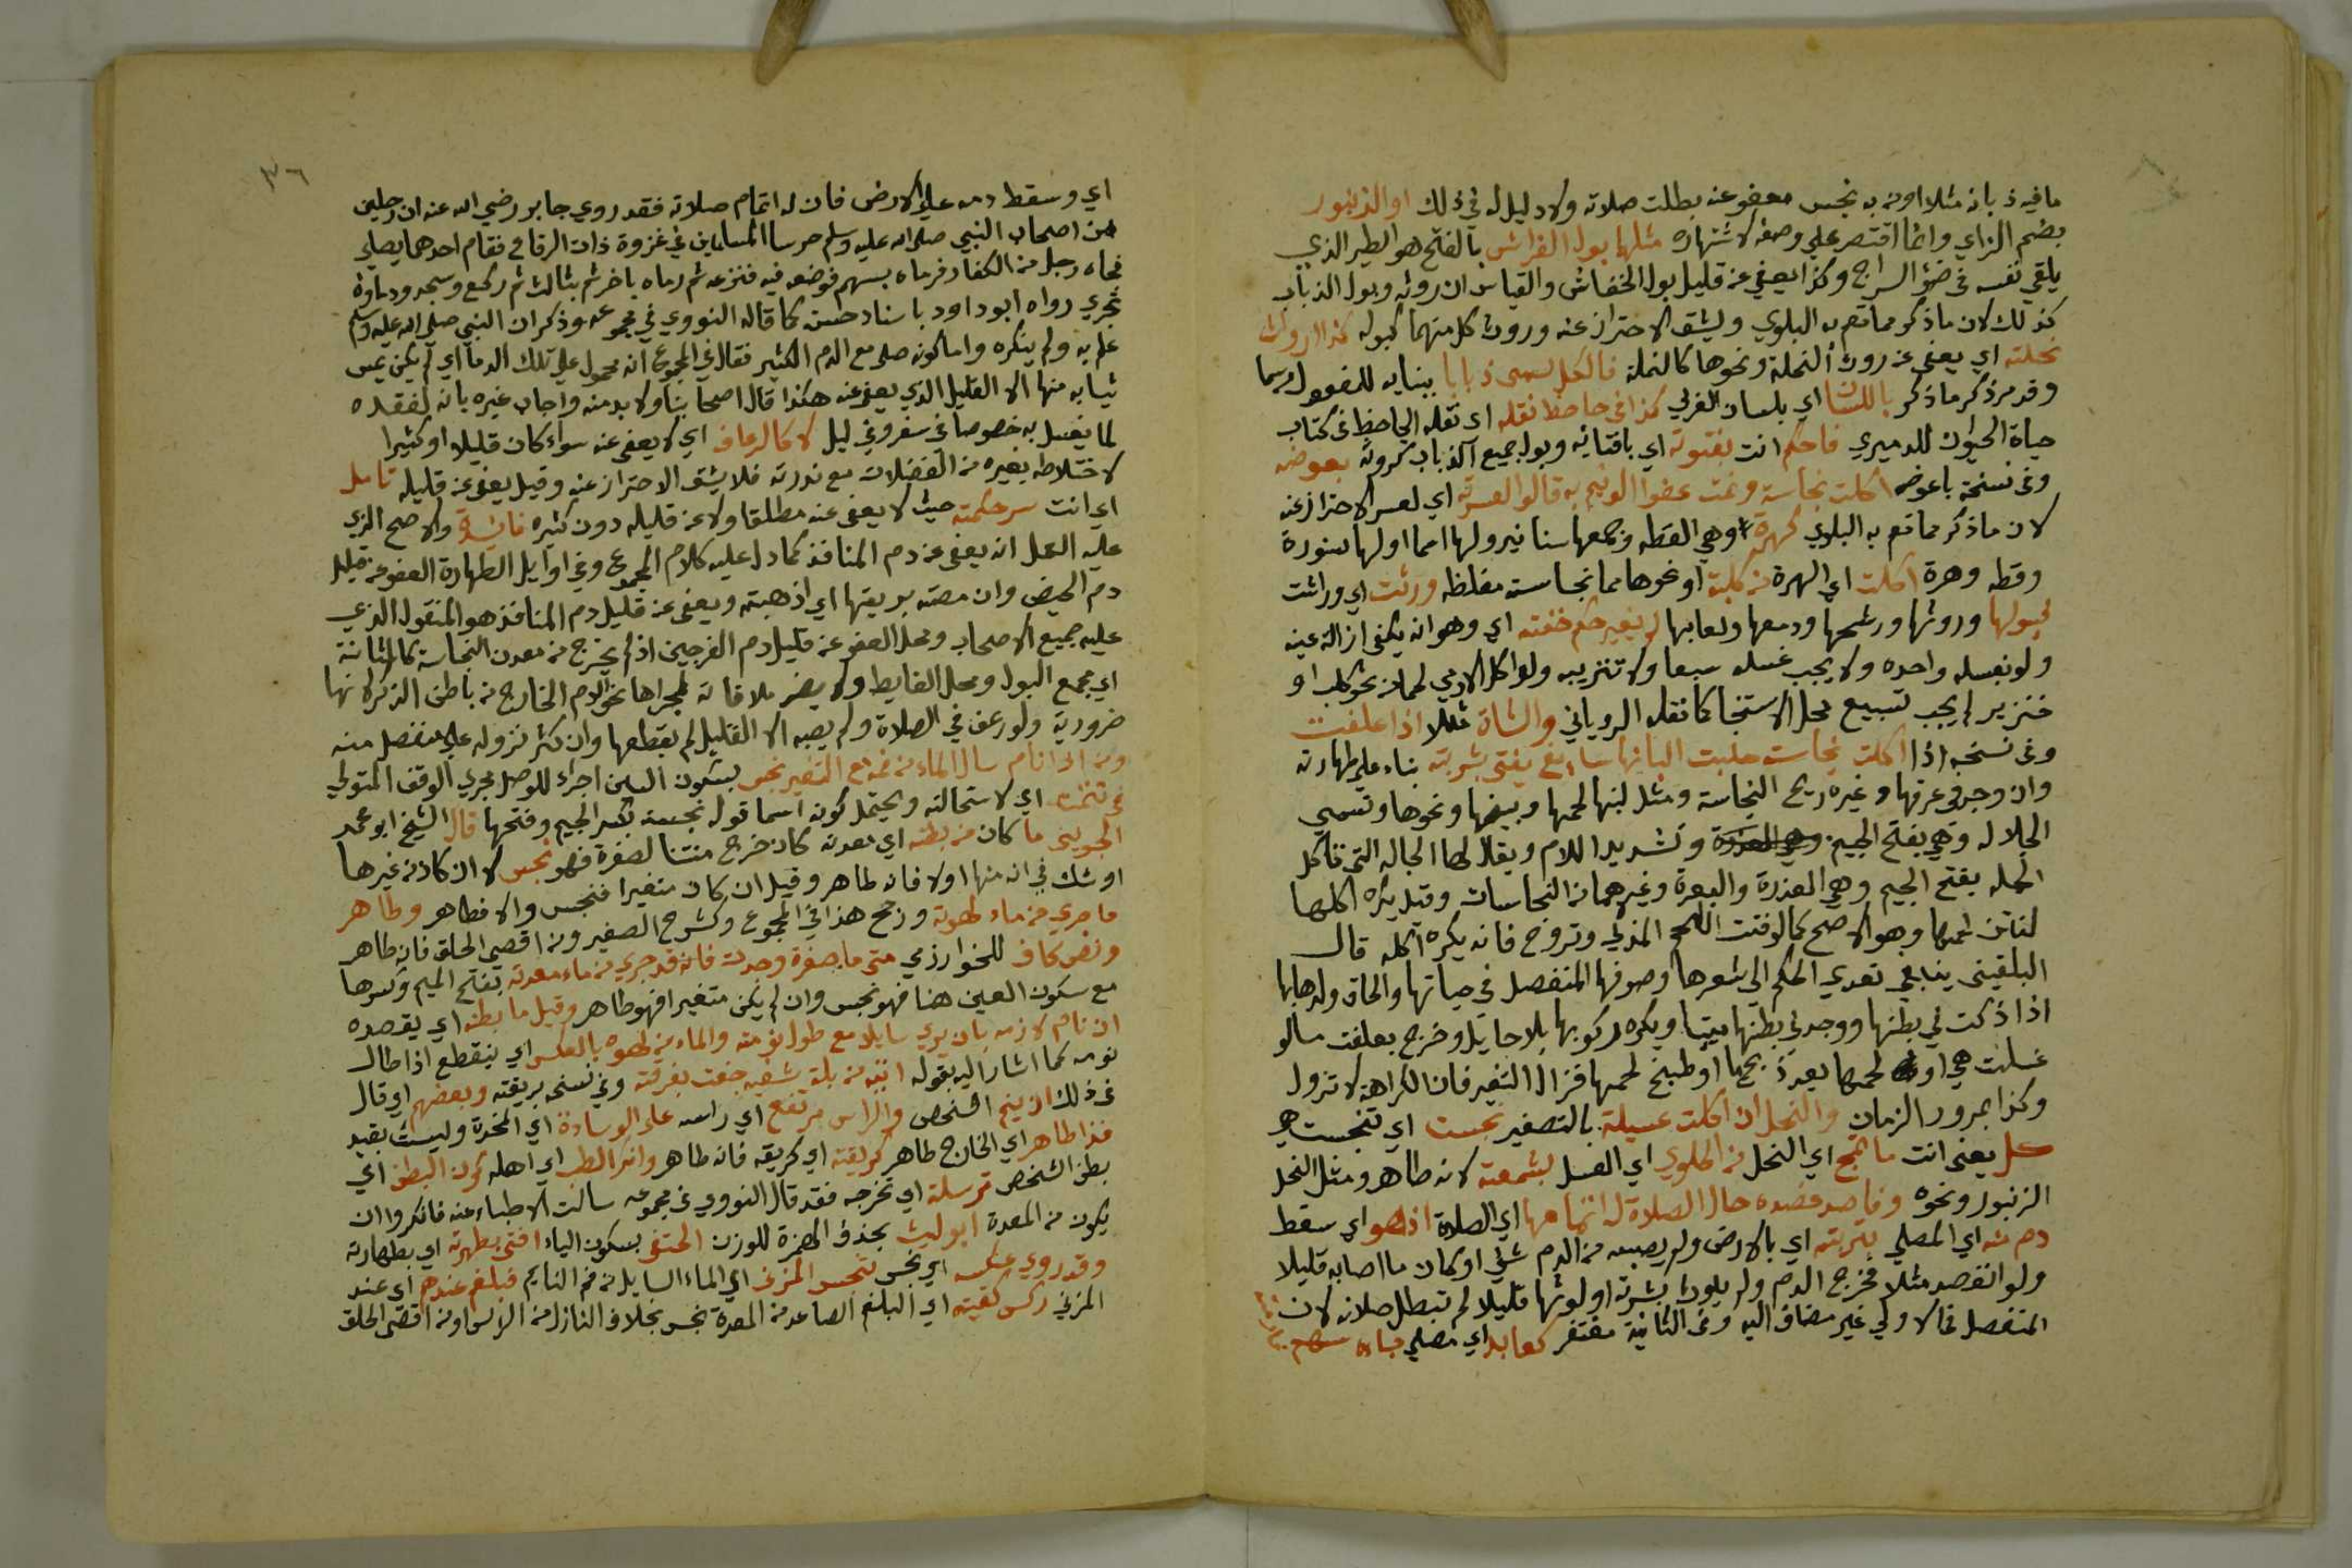 ما فيه ذبابة مثلا او نه به نجس معفو عنه بطلت صلاته ولا دليل له في ذلك او الزنبور
بضم الزاي وانما اقتصر علي وصفه لاشتهاره مثلها بول الفراش بالفتح هو الطير الذي
يلقي نفسه في ضؤ السراج وكذا يعفي عن قليل بول الخفاش والقياس ان روثه وبول الذباب
كذلك لان ما ذكر مما تعم به البلوي ويشق الاحتراز عنه وروث كل منهما كبوله كذا روث
نحلته اي يعفي عن روث النحلة ونحوها كالنملة فالكل يسمى ذبابا ببنايه للمفعول رسما
وقد مر ذكر ما ذكر باللسان اي بلسان العربي كذا في حاحظ نقله اي نقله الجاحظ في كتاب
حياة الحيوان للدميري فاحكم انت بفتوته اي بافتائه وبول جميع الذباب كروثه بعوضه
وفي نسخة باعوضه اكلت نجاسة ونمت عفوا الونيم به قالوا لعسرته اي لعسر الاحتراز عنه
لان ما ذكر مما تعم به البلوي كهرة وهي القطه وجمعها سنانير ولها اسما اولها سنورة
وقطه وهرة اكلت اي الهرة من كلبة او نحوها مما نجاسته مغلظه وراثت اي وراثت
لبولها وروثها ورشحها ودمعها ولعابها لم يغير حكم خفته اي وهو انه يكفي ازالة عينه
ولو بغسله واحده ولا يجب غسله سبعا ولا تتريبه ولو اكل الادمي لحما من نحو كلب او
خنزير لم يجب تسبيع محل الاستنجا كما نقله الروياني والشاة مثلا اذا علفت
وفي نسخه اذا اكلت نجاسة حلبت البانها ساغ يفتي بشربته بناء علي طهارته
وان وجد في عرقها وغيره ريح النجاسة ومثل لبنها لحمها وبيضها ونحوها وتسمي
الجلاله وهي بفتح الجيم وتشديد اللام ويقال لها الجاله التي تاكل
الجله بفتح الجيم وهي العذرة والبعرة وغيرهما من النجاسات وقيل يكره اكلها
لنتن لحمها وهو الاصح كما لو نتن اللحم المذكي وتروح فانه يكره اكله قال
البلقيني ينبغي تعدي الحكم الي شعرها وصوفها المنفصل في حياتها والحاق ولدها بها
اذا ذكت في بطنها ووجد في بطنها ميتا ويكره ركوبها بلا حايل وخرج بعلفت ما لو
غسلت هي او لحمها بعد ذبحها او طبخ لحمها فزال التغير فان الكراهة لا تزول
وكذا بمرور الزمان والنحل ان اكلت عسيلة بالتصغير نجست اي تنجست هي
كل يعني انت ما تمج اي النحل من الحلوي اي العسل بشمعته لانه طاهر ومثل النحل
الزنبور ونحوه وفاصد فصده حال الصلاة له اتمامها اي الصلاة اذ هو اي سقط
دم منه اي المصلي بتربته اي بالارض ولم يصبه من الدم شئ او كان ما اصابه قليلا
ولو انفصد مثلا فخرج الدم ولم يلوث بشرته او لوثها قليلا لم تبطل صلاته لان
المنفصل في الاولي غير مضاف اليه وفي الثانية مغتفر كعابد اي مصلي جاءه سهم
٣٦
اي وسقط دمه علي الارض فان له اتمام صلاته فقد روي جابر رضي الله عنه ان رجلين
من اصحاب النبي صلي الله عليه وسلم حرسا المسلمين في غزوة ذات الرقاع فقام احدهما يصلي
فجاه رجل من الكفار فرماه بسهم فوضعه فيه فنزعه ثم رماه باخر ثم بثالث ثم ركع وسجد ودماؤه
تجري رواه ابو داود باسناد حسن كما قاله النووي في مجموعه وذكر ان النبي صلي الله عليه وسلم
علم به ولم ينكره واما كونه صلي مع الدم الكثير فقال في المجموع انه محمول علي تلك الدما اي لم يكن يمس
ثيابه منها الا القليل الذي يعفي عنه هكذا قال اصحابنا ولا بد منه واجاب غيره بانه لفقده
لما يغسل به خصوصا في سفر وفي ليل لا كالرعاف اي لا يعفي عنه سواء كان قليلا او كثيرا
لاختلاطه بغيره من الفضلات مع ندرته فلا يشق الاحتراز عنه وقيل يعفي عن قليله تامل
اي انت سر حكمته حيث لا يعفي عنه مطلقا ولا عن قليله دون كثيره فائدة والاصح الذي
عليه العمل انه يعفي عن دم المنافذ كما دل عليه كلام المجموع وفي اوايل الطهارة العفو عن قليل
دم الحيض وان مصته بريقتها اي اذهبته ويعفي عن قليل دم المنافذ هو المنقول الذي
عليه جميع الاصحاب ومحل العفو عن قليل دم الفرجين اذا لم يخرج من معدن النجاسة كالمثانة
اي مجمع البول ومحل الغايط ولا يضر ملاقاته لمجراها نحو الدم الخارج من باطن الذكر لانها
ضرورية ولو رعف في الصلاة ولم يصبه الا القليل لم يقطعها وان كثر نزوله علي منفصل منه
ومن اذا نام سال الماء من فمه مع التغير نجس بسكون السين اجراء للوصل مجري الوقف المتولي
في تتمته اي لاستحالته ويحتمل كونه اسما قوله نجسه بكسر الجيم وفتحها قال الشيخ ابو محمد
الجويني ما كان من بطنه اي معدته كان خرج منتنا لصفرة فهو نجس لا ان كان من غيرها
او شك في انه منها اولا فانه طاهر وقيل ان كان متغيرا فنجس والا فطاهر وطاهر
ما جري من ماء لهوته ورجح هذا في المجموع وكشرح الصغير ومن اقصي الحلق فانه طاهر
ونص كاف للخوارزمي متي ما بصفرة وجدت فانه قد جري من ماء معدته بفتح الميم وكسرها
مع سكون العين هنا فهو نجس وان لم يكن متغيرا فهو طاهر وقيل ما بطنه اي يقصده
ان نام لازمه بان يري سايلا مع طول نومته والماء من لهوه بالعكس اي ينقطع اذا طال
نومه كما اشار اليه بقوله انتبه من بلة شفيه جفت بغرفته وفي نسخه بريقته وبعضهم اي قال
في ذلك ان ينم الشخص والراس مرتفع اي راسه علي الوسادة اي المخدة وليست بقيد
فذا طاهر اي الخارج طاهر كريقته اي كريقه فانه طاهر وانكر الطب اي اهله كون البطن اي
بطن الشخص ترسله اي تخرجه فقد قال النووي في مجموعه سالت الاطباء عنه فانكروا ان
يكون من المعدة ابو ليث بحذف الهمزة للوزن الحنفي بسكون الياء افتي بطهرته اي بطهارته
وقد روي عكسه اي نجس تنجس المزني اي الماء السايل من فم النايم فبلغم عندهم اي عند
المزني ركس كقيته اي البلغم الصاعد من المعدة نجس بخلاف النازل من الراس او من اقصي الحلق